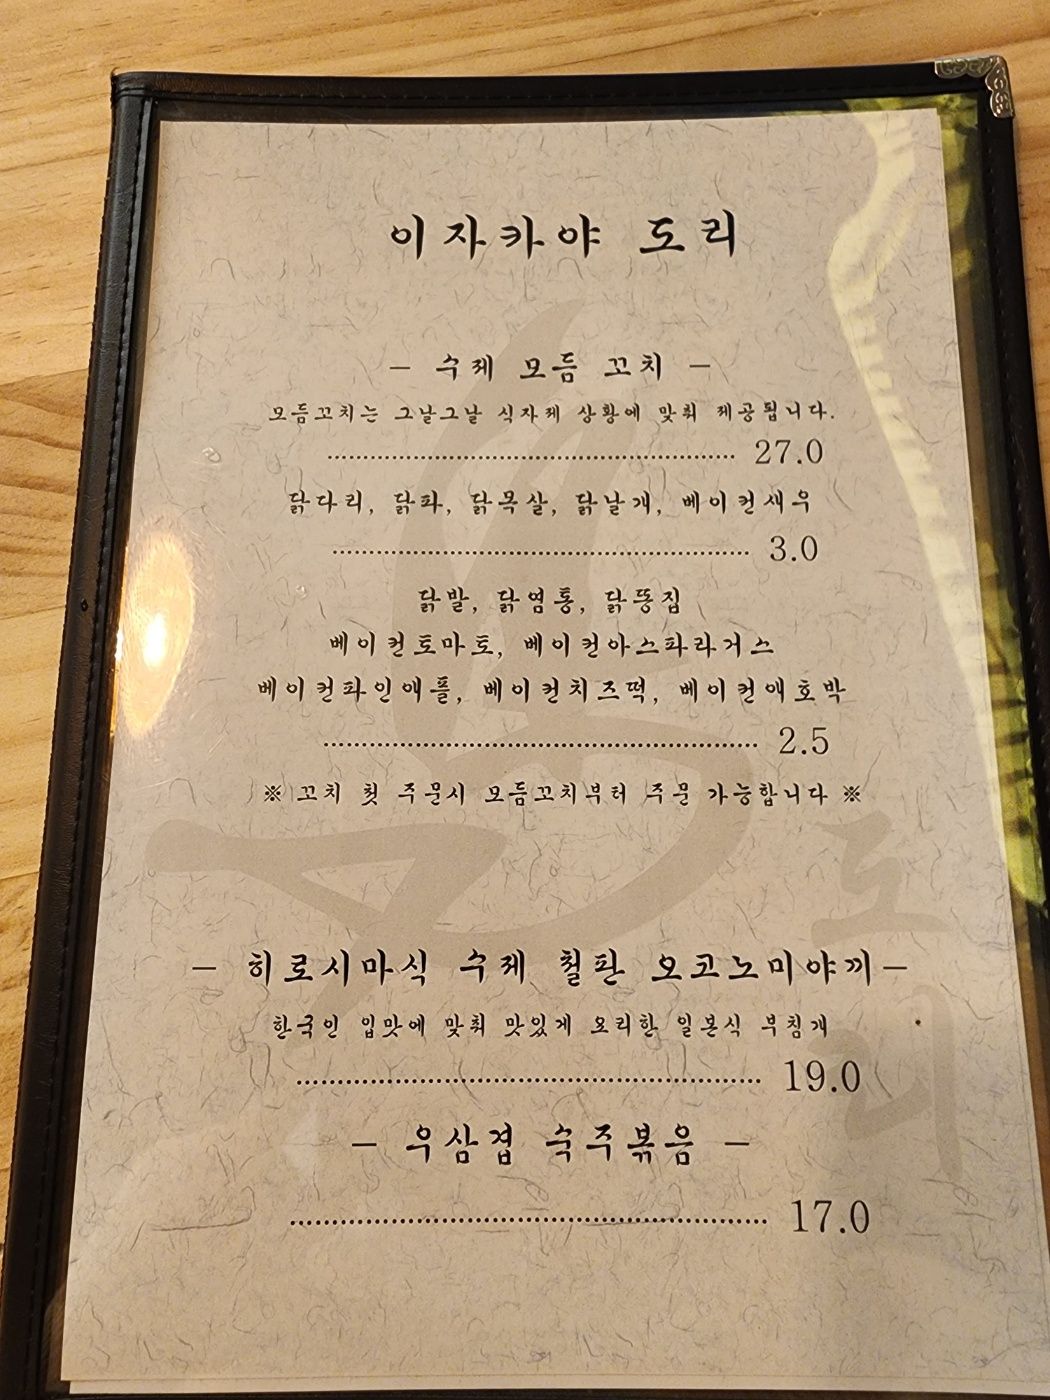 이자카야 도리
- 수제 모듬 꼬치 -
모듬꼬치는 그날그날 식자제 상황에 맞춰 제공됩니다.
27.0
닭다리, 닭파, 닭목살, 닭날개, 베이컨새우
3.0
닭발, 닭염통, 닭똥집
베이컨토마토, 베이컨아스파라거스
베이컨파인애플, 베이컨치즈떡, 베이컨애호박
2.5
※ 꼬치 첫 주문시 모듬꼬치부터 주문 가능합니다 ※
- 히로시마식 수제 철판 오코노미야끼-
한국인 입맛에 맞춰 맛있게 요리한 일본식 부침개
19.0
- 우삼겹 숙주볶음 -
17.0
도리